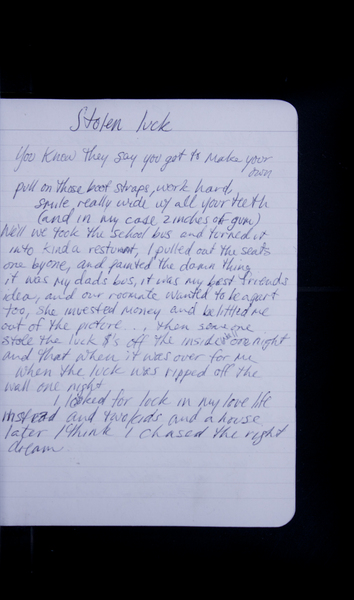 Stolen luck
You knew they say you got to make your
own
pull on those boot straps, work hard,
smile, really wide w/ all your teeth
(and in my case, 2 inches of gum)
Well we took the school bus and turned it
into kinda resturant, I pulled out the seats
one by one, and painted the damn thing
it was my dads bus, it was my best friends
idea, and our roomate wanted to be apart
too, she invested money and belittled me
out of the picture... then someone
stole the luck $'s off the inside one night
and that when it was over for me
when the luck was ripped off the
wall one night
I looked for luck in my love life
instead and two kids and a house
later I think I chased the right
dream